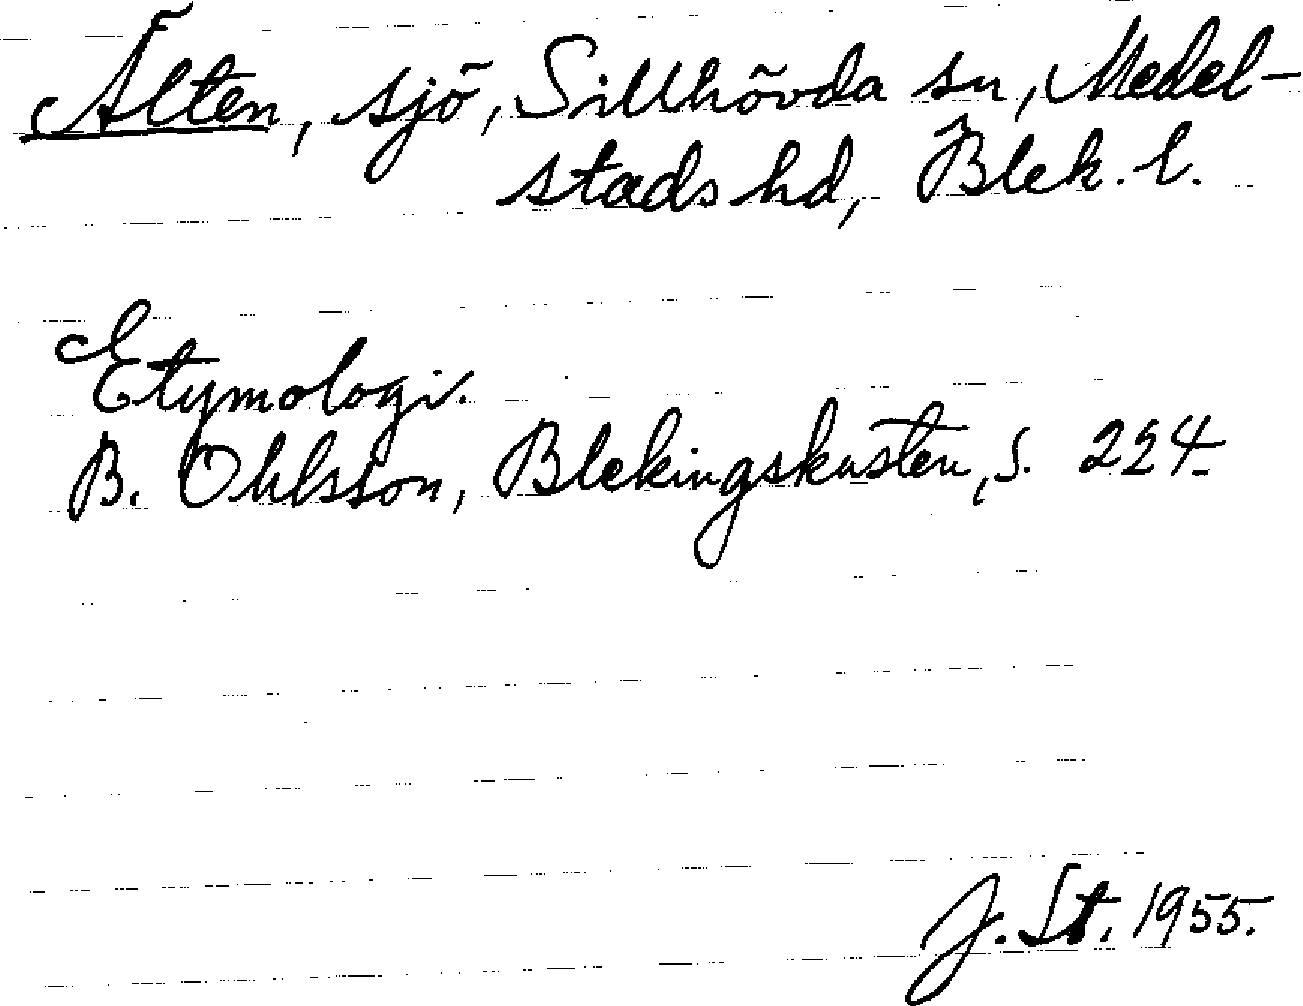 Älten, sjö, Sillhövda sn, Medel-
stads hd, Blek. l.
Etymologi.
B. Ohlsson, Blekingskusten, S. 224.
J. St. 1955.